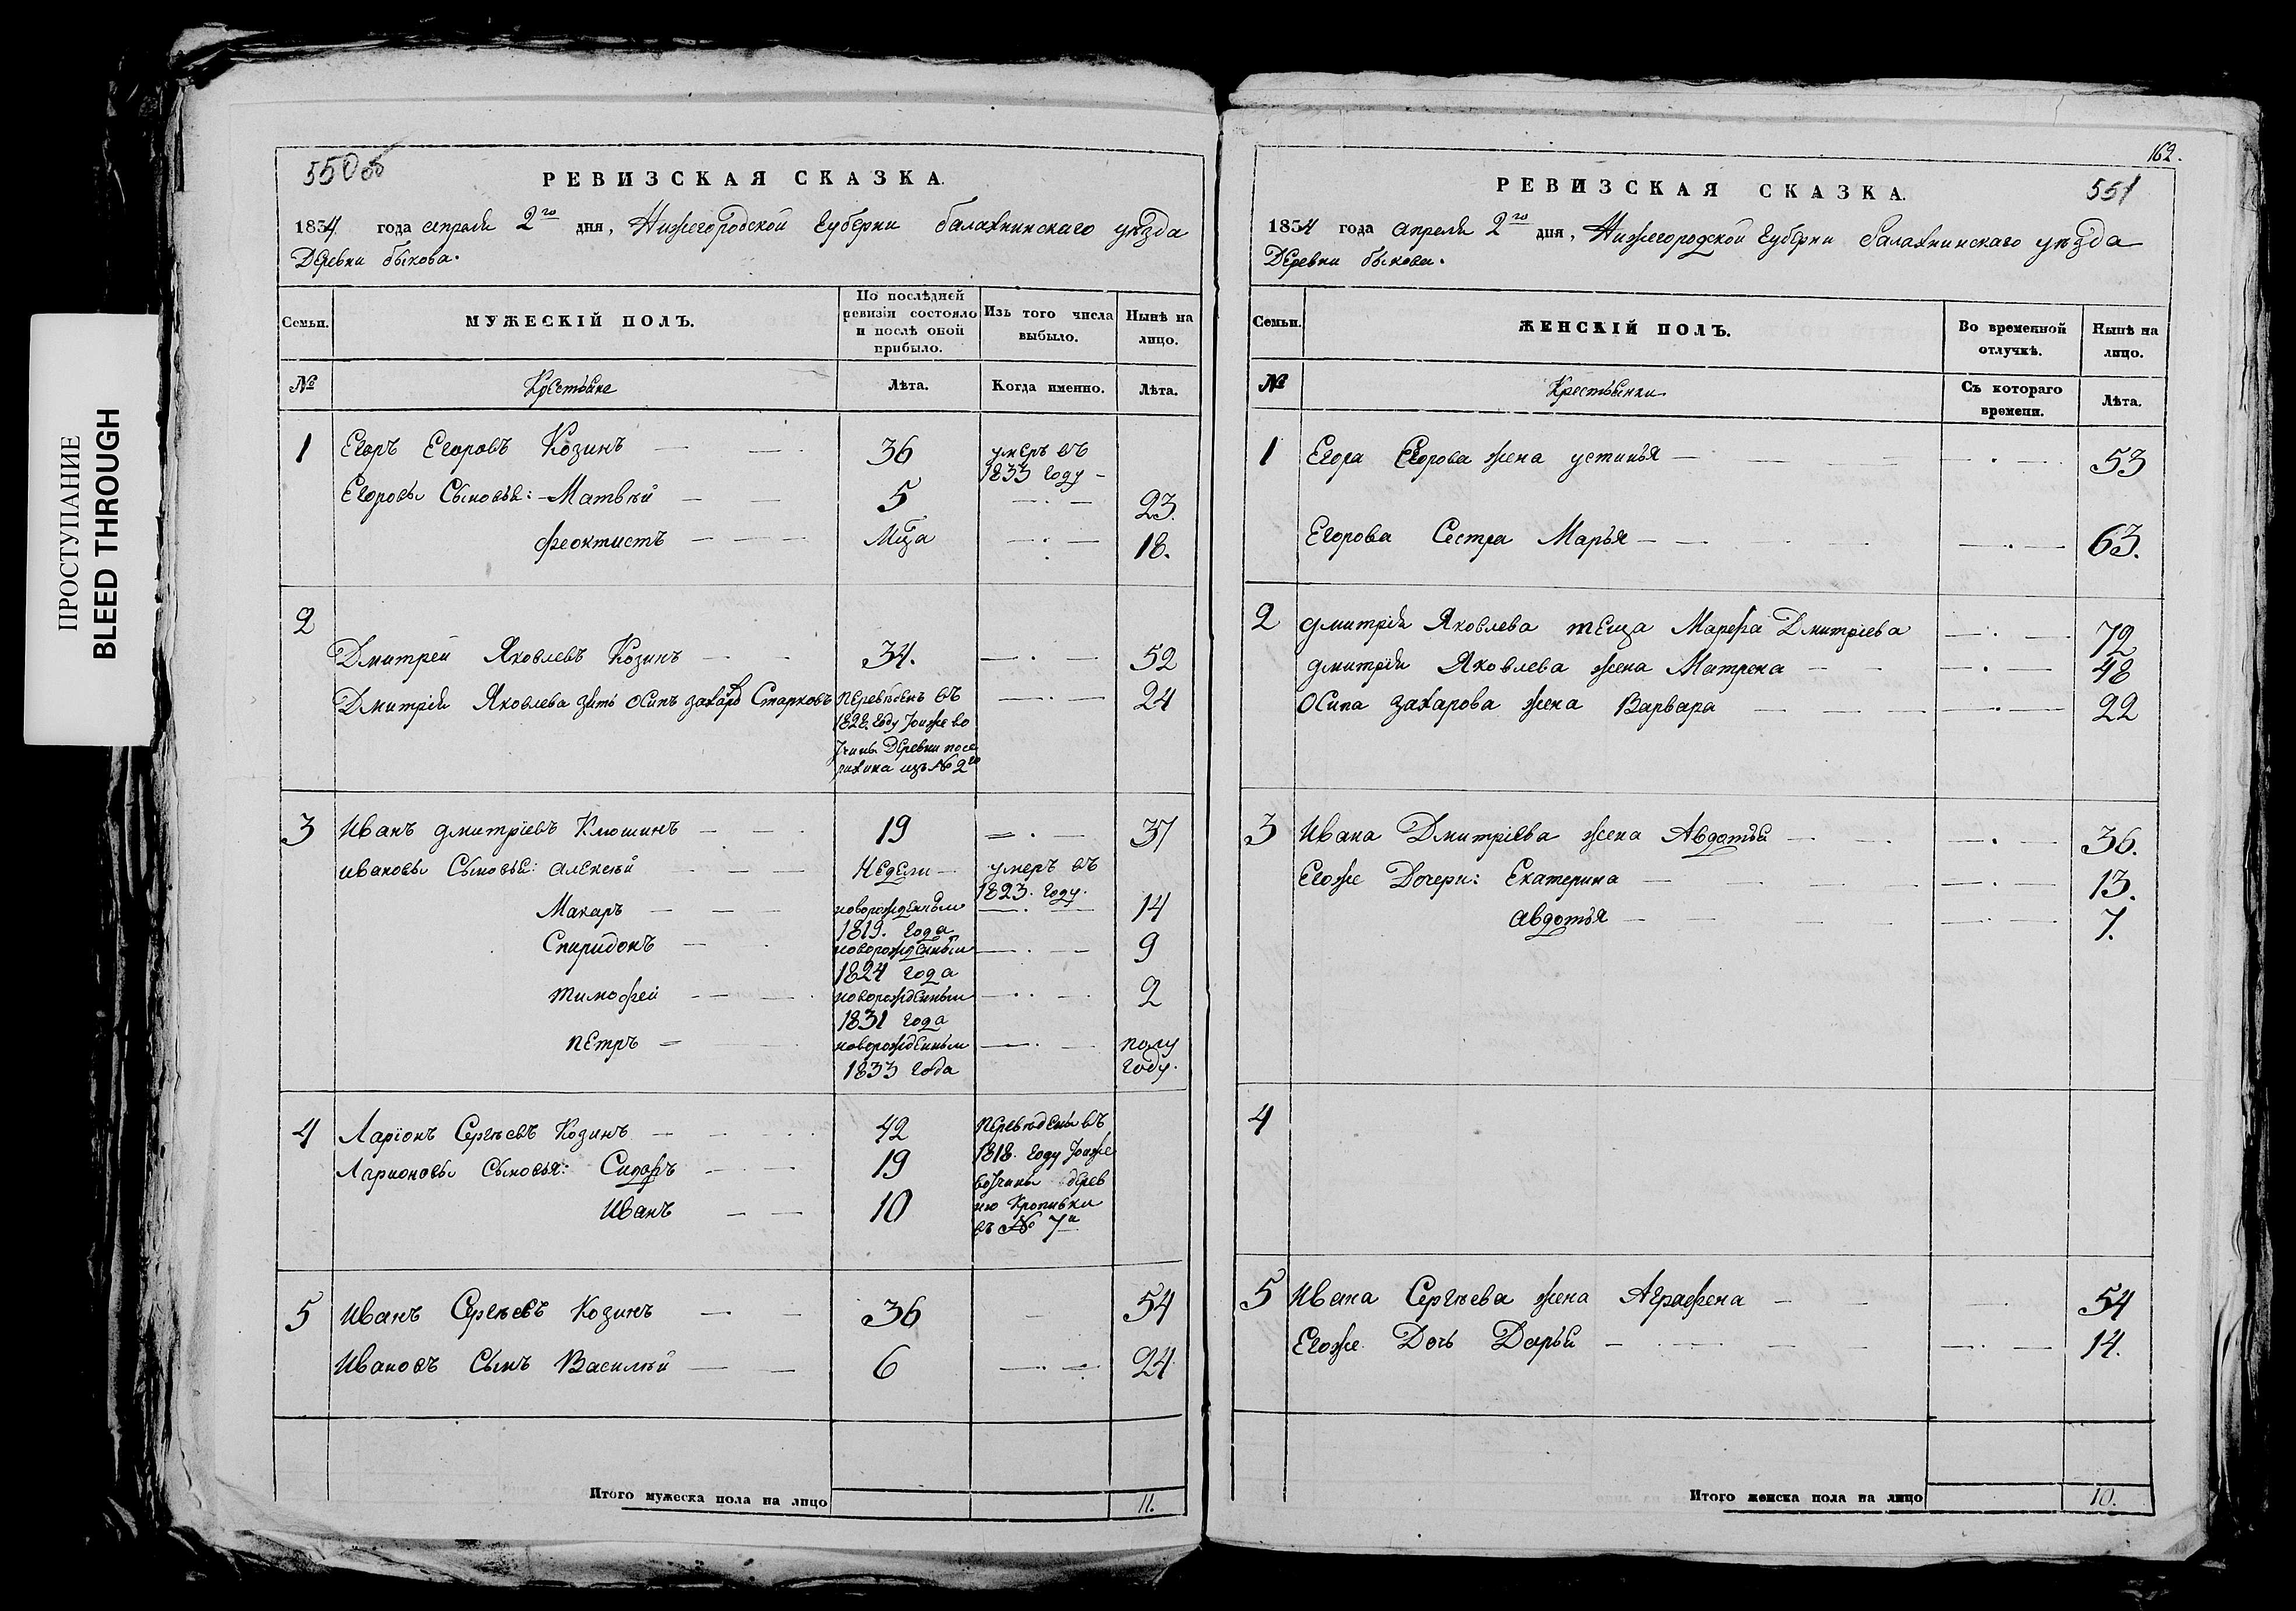 ПРОСТУПАНИЕ
BLEED THROUGH
550об
РЕВИЗСКАЯ СКАЗКА.
1834 года апреля 2го дня, Нижегородской Губернии балахнинскаго уезда
Деревни быкова.
Семьи.
МУЖЕСКІЙ ПОЛЪ.
По послѣдней ревизіи состояло и послѣ оной прибыло.
Изъ того числа выбыло.
Нынѣ на лицо.
№
Крестьяне
Лѣта.
Когда именно.
Лѣта.
1 Егоръ Егоровъ Козинъ 36 умеръ въ
1833 году
Егоровы Сыновья: Матвѣй 5 23.
феоктистъ Мца 18.
2
Дмитрей Яковлевъ Козинъ 34. 52
Дмитрія Яковлева зять Осипъ захаровъ Старковъ переведенъ въ 24
1828 году
деревни
изъ № 2го
3 Иванъ дмитріевъ Клюшинъ 19 37
ивановы Сыновья: алексѣй Недели умеръ въ
1823. году.
Макаръ новорожденный 14
1819. года
Спиридонъ новорожденный 9
1824 года
тимофей новорожденный 2
1831 года
петръ новорожденный полу
1833 года году.
4 Ларіонъ Сергѣевъ Козинъ 42 переведены въ
Ларионовы Сыновья: Сидоръ 19 1818. году тойже
вотчины дерев
Иванъ 10 ню Кропивки
въ № 7й
5 Иванъ Сергѣевъ Козинъ 36 54
Ивановъ Сынъ Василий 6 24
Итого мужеска пола на лицо 11.
162.
РЕВИЗСКАЯ СКАЗКА.
551
1834 года апреля 2го дня, Нижегородской Губернии балахнинскаго уезда
Деревни быкова.
Семьи.
ЖЕНСКІЙ ПОЛЪ.
Во временной отлучкѣ.
Нынѣ на лицо.
№
Крестьянки
Съ котораго времени.
Лѣта.
1 Егора Егорова жена устинья 53
Егорова Сестра Марья 63.
2 дмитрія Яковлева теща Марфа Дмитріева 72
дмитрія Яковлева жена Матрена 48
Осипа захарова жена Варвара 22
3 Ивана Дмитріева жена Авдотья 36.
Егоже Дочери: Екатерина 13.
авдотья 7.
4
5 Ивана Сергѣева жена Аграфена 54
Егоже Дочь Дарья 14.
Итого женска пола на лицо 10.